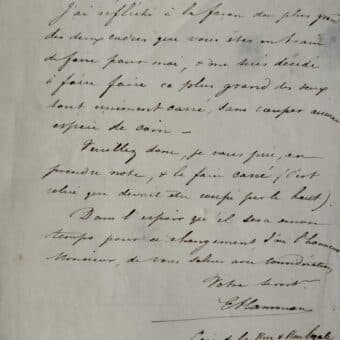 J'ai réfléchi à la façon du plus grand
des deux cadres que vous êtes en train
de faire pour moi, & me suis décidé
à faire faire ce plus grand des deux
tout uniment carré, sans couper aucune
espèce de coin —
Veuillez donc, je vous prie, en
prendre note, & le faire carré (c'est
celui que devait être coupé par le haut).
Dans l'espoir qu'il sera encore
temps pour ce changement j'ai l'honneur
Monsieur, de vous saluer avec considération
Votre servt
EHamman
Rue Royale